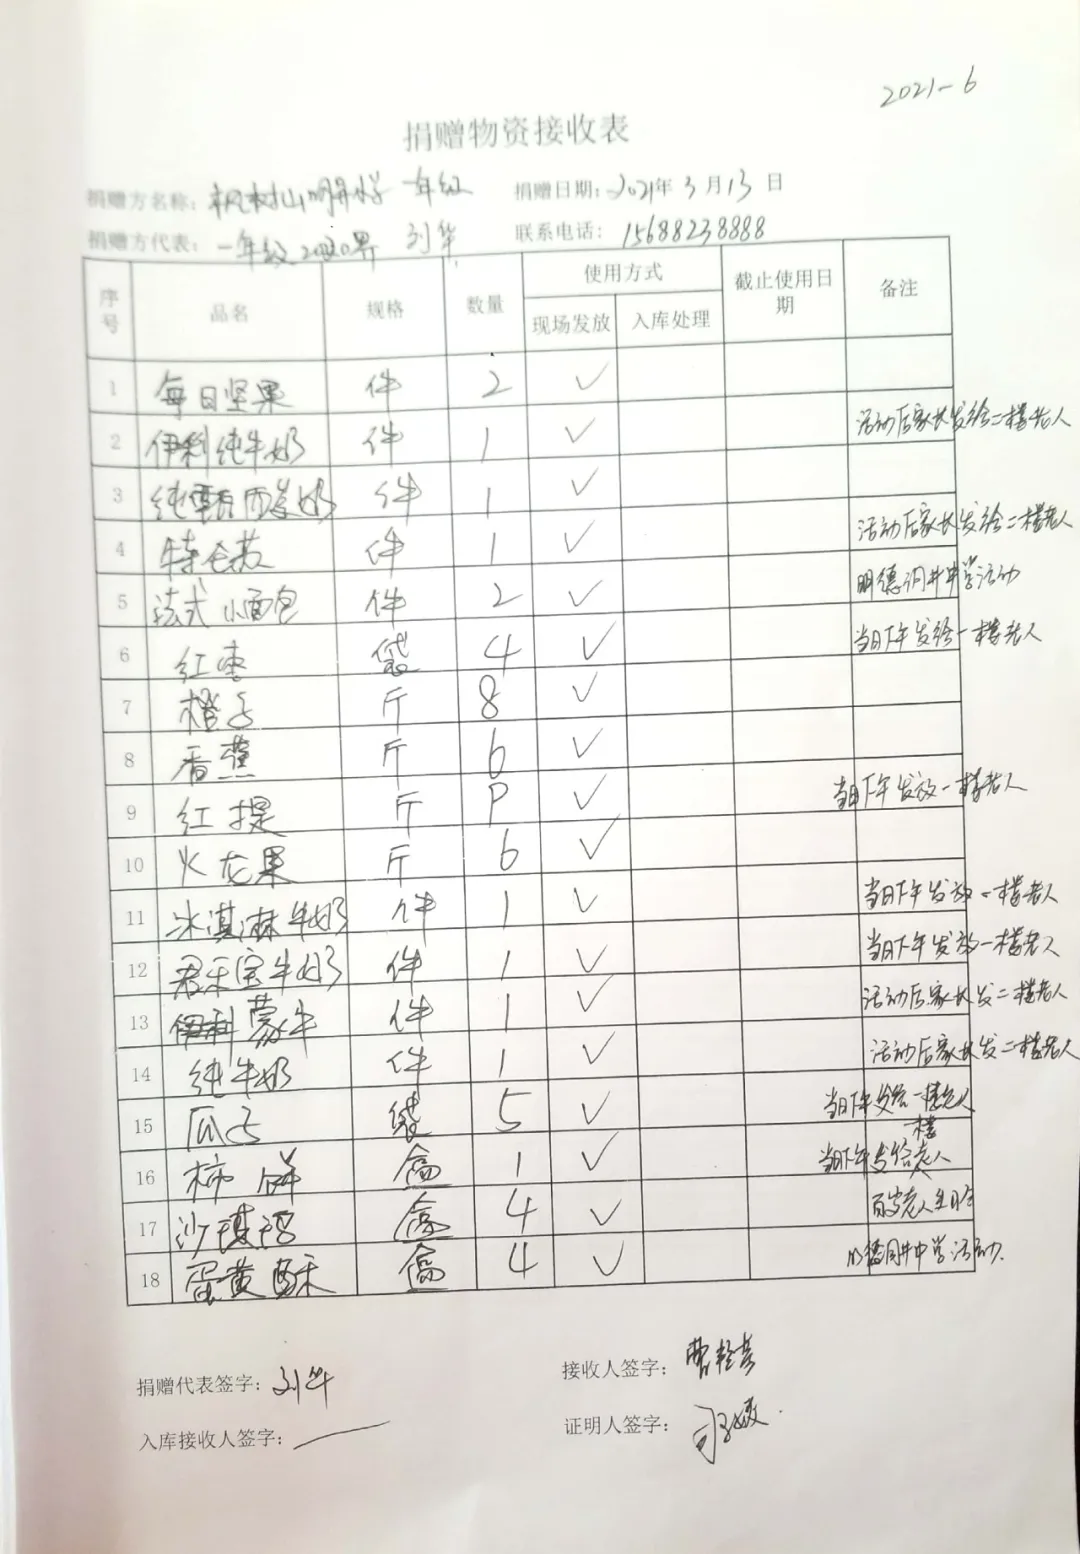 2021-6
捐赠物资接收表
捐赠方名称: 枫树山明昇小学 一年级 捐赠日期: 2021年3月13日
捐赠方代表: 一年级2020界 刘华 联系电话: 15688238888
序号 品名 规格 数量 使用方式 截止使用日期 备注
现场发放 入库处理
1 每日坚果 件 2 ✓
2 伊利纯牛奶 件 1 ✓ 活动后家长发给二楼老人
3 纯甄 奶 件 1 ✓
4 特仑苏 件 1 ✓ 活动后家长发给二楼老人
5 法式小面包 件 2 ✓ 明德洞井中学活动
6 红枣 袋 4 ✓ 当日下午发给一楼老人
7 橙子 斤 8 ✓
8 香蕉 斤 6 ✓
9 红提 斤 P ✓ 当日下午发放一楼老人
10 火龙果 斤 6 ✓
11 冰淇淋牛奶 件 1 ✓ 当日下午发放一楼老人
12 君乐宝牛奶 件 1 ✓ 当日下午发放一楼老人
13 蒙牛 件 1 ✓ 活动后家长发二楼老人
14 纯牛奶 件 1 ✓ 活动后家长发二楼老人
15 瓜子 袋 5 ✓ 当日下午发给一楼老人
16 柿饼 盒 1 ✓ 当日下午发给楼老人
17 沙琪玛 盒 4 ✓ 百岁老人生日会
18 蛋黄酥 盒 4 ✓ 明德洞井中学活动.
捐赠代表签字: 刘华 接收人签字:
入库接收人签字: 证明人签字: